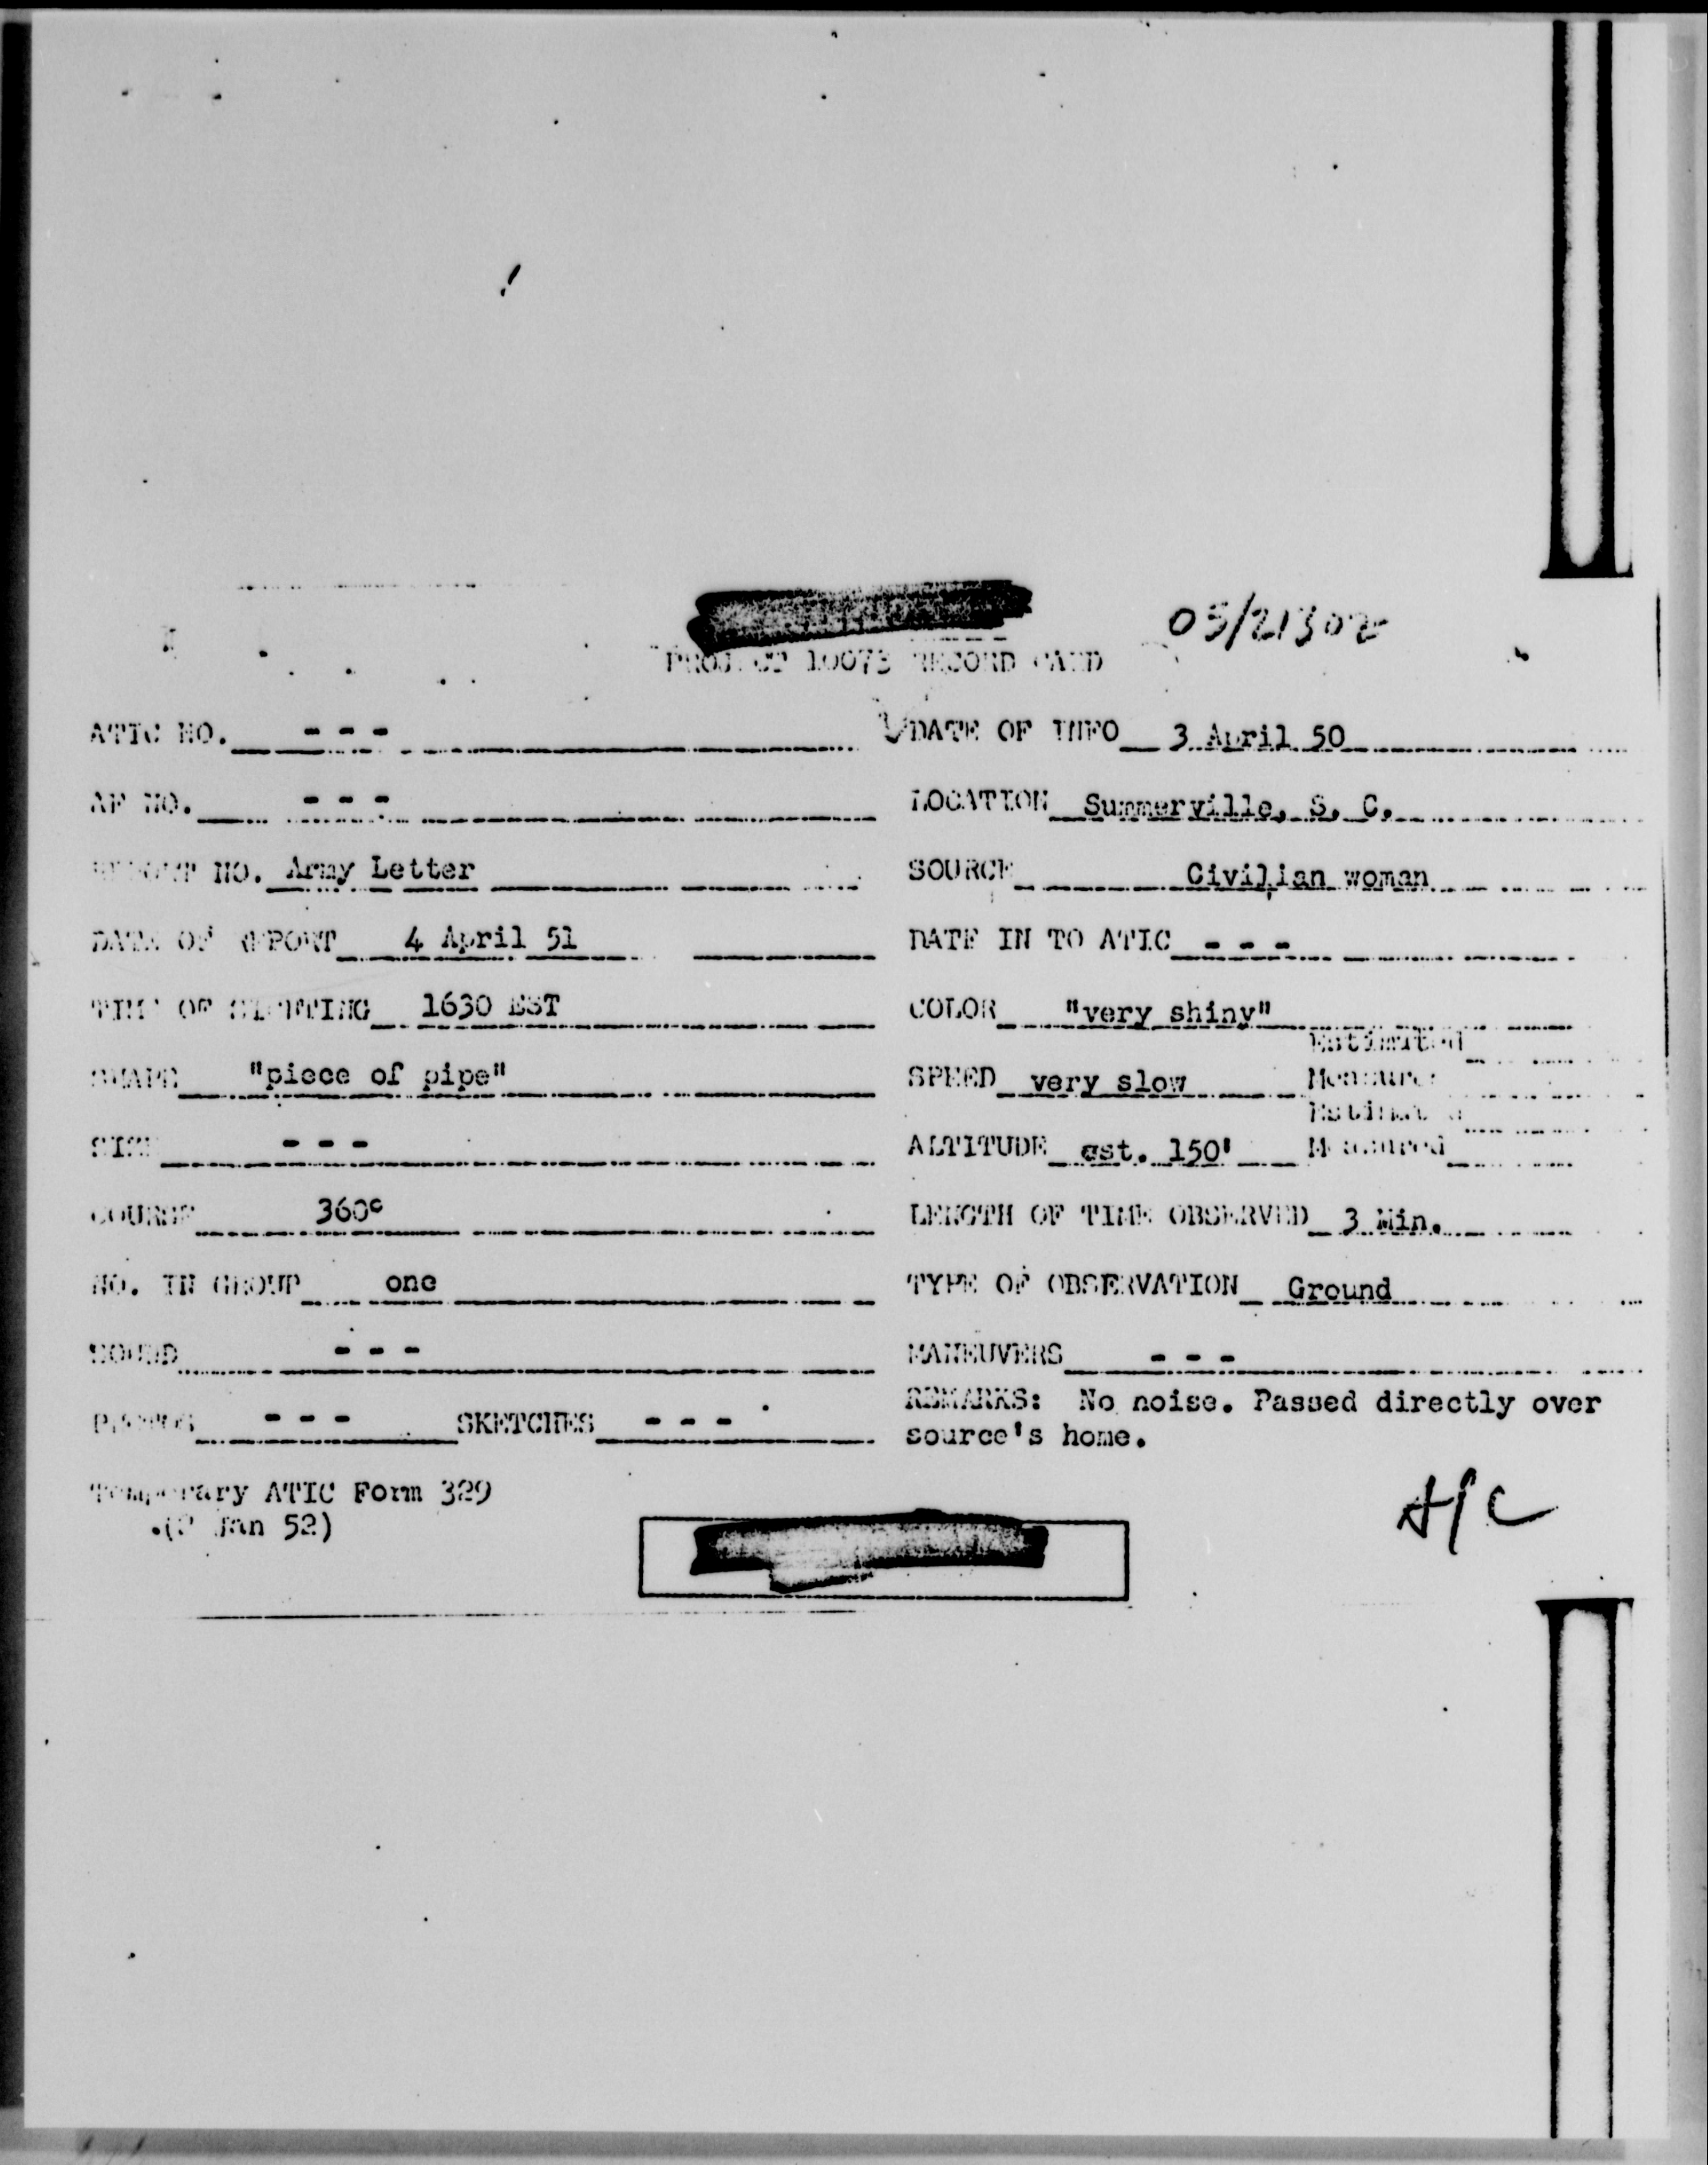 05/2130Z
PROJECT 10073 RECORD CARD
ATIC NO. - - -
DATE OF INFO 3 April 50
AF NO. - - -
LOCATION Summerville, S. C.
REPORT NO. Army Letter
SOURCE Civilian woman
DATE OF REPORT 4 April 51
DATE IN TO ATIC - - -
TIME OF SIGHTING 1630 EST
COLOR "very shiny"
SHAPE "piece of pipe"
SPEED very slow
Estimated
Measured
SIZE - - -
ALTITUDE est. 150'
Estimated
Measured
COURSE 360°
LENGTH OF TIME OBSERVED 3 Min.
NO. IN GROUP one
TYPE OF OBSERVATION Ground
SOUND - - -
MANEUVERS - - -
PHOTOS - - - SKETCHES - - -
REMARKS: No noise. Passed directly over
source's home.
Temporary ATIC Form 329
(2 Jan 52)
A/C